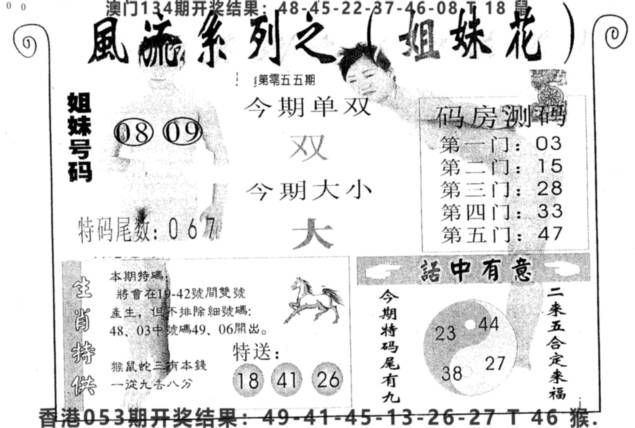 澳门134期开奖结果：48-45-22-37-46-08 T 18 鼠
風流系列之（姐妹花）
第零五五期
姐妹号码
08 09
特码尾数：067
今期单双
双
今期大小
大
码房测码
第一门：03
第二门：15
第三门：28
第四门：33
第五门：47
生肖特供
本期特碼：
將會在19-42號間雙號
產生，但不排除細號碼：
48、03中號碼49、06開出。
猴鼠蛇三有本錢
一淀九去八分
特送：
18 41 26
話中有意
今期特码尾有九
23 44
38 27
二来五合定来福
香港053期开奖结果：49-41-45-13-26-27 T 46 猴.